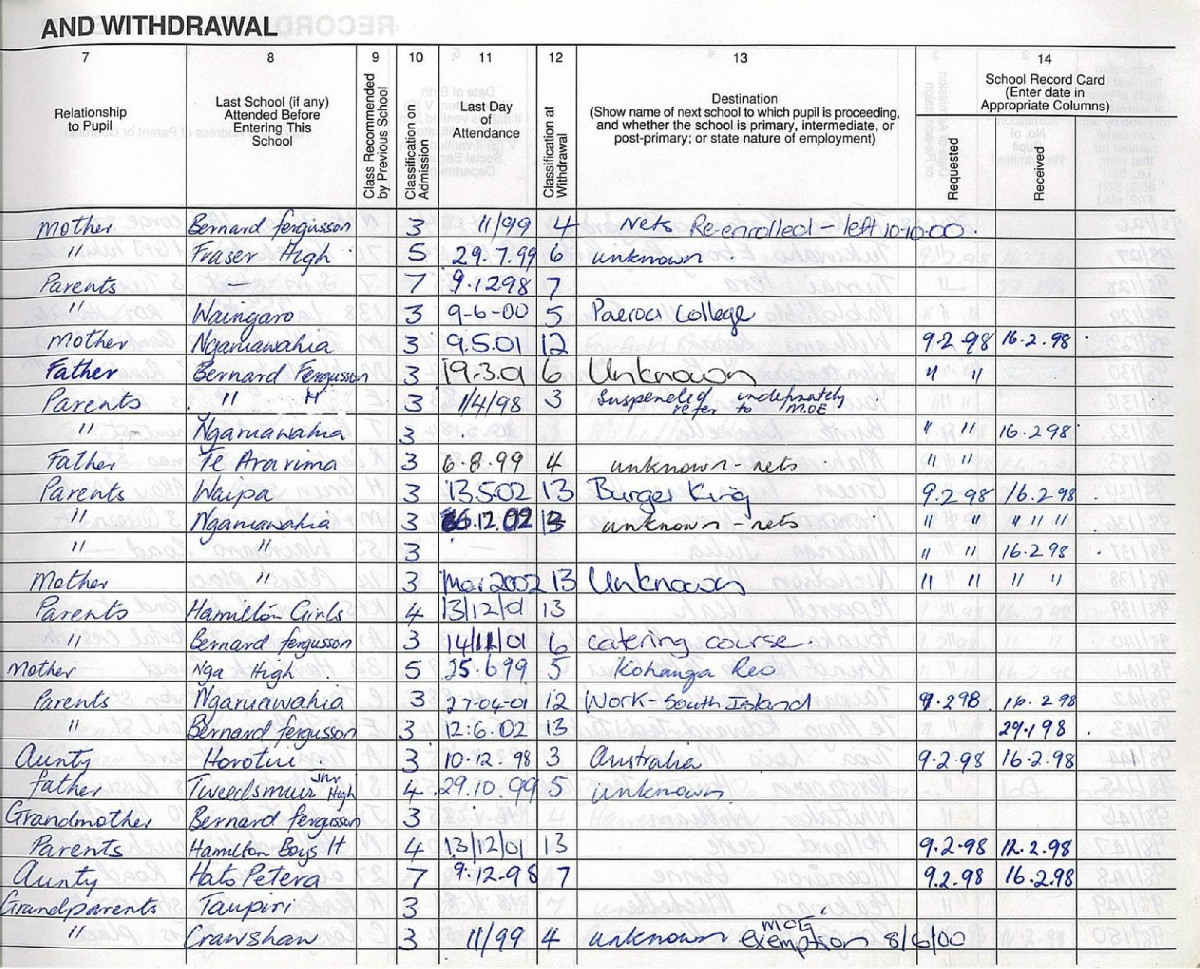 AND WITHDRAWAL
7 8 9 10 11 12 13 14
Relationship to Pupil
Last School (if any) Attended Before Entering This School
Class Recommended by Previous School
Classification on Admission
Last Day of Attendance
Classification at Withdrawal
Destination (Show name of next school to which pupil is proceeding, and whether the school is primary, intermediate, or post-primary; or state nature of employment)
School Record Card (Enter date in Appropriate Columns)
Requested
Received
Mother Bernard fergusson 3 11/99 4 Nets Re-enrolled - left 10.10.00.
" Fraser High 5 29.7.99 6 unknown.
Parents — 7 9.1298 7
" Waingaro 3 9-6-00 5 Paeroa College
Mother Ngaruawahia 3 9.5.01 12 9.2.98 16.2.98
Father Bernard Fergusson 3 19.3.01 6 Unknown " "
Parents " " 3 1/4/98 3 Suspended indefinately refer to M.O.E
" Ngaruawahia 3 " " 16.2.98
Father Te Ararima 3 6.8.99 4 unknown - nets " "
Parents Waipa 3 13.502 13 Burger King 9.2.98 16.2.98
" Ngaruawahia 3 .12.02 13 unknown - nets " " " " "
" " 3 " " 16.2.98
Mother " 3 Mar 2002 13 Unknown " " " "
Parents Hamilton Girls 4 13/12/01 13
" Bernard fergusson 3 14/11/01 6 catering course.
Mother Nga High 5 25.699 5 Kohanga Reo
Parents Ngaruawahia 3 27-04-01 12 Work - South Island 9.298 16.2.98
" Bernard fergusson 3 12:6.02 13 29.1.98
Aunty Horotiu 3 10.12.98 3 Australia 9.2.98 16.2.98
father Tweedsmuir Jnr High 4 29.10.99 5 unknown
Grandmother Bernard fergusson 3
Parents Hamilton Boys H 4 13/12/01 13 9.2.98 12.2.98
Aunty Hato Petera 7 9.12-98 7 9.2.98 16.2.98
Grandparents Taupiri 3
" Crawshaw 3 11/99 4 unknown MOE exemption 8/6/00